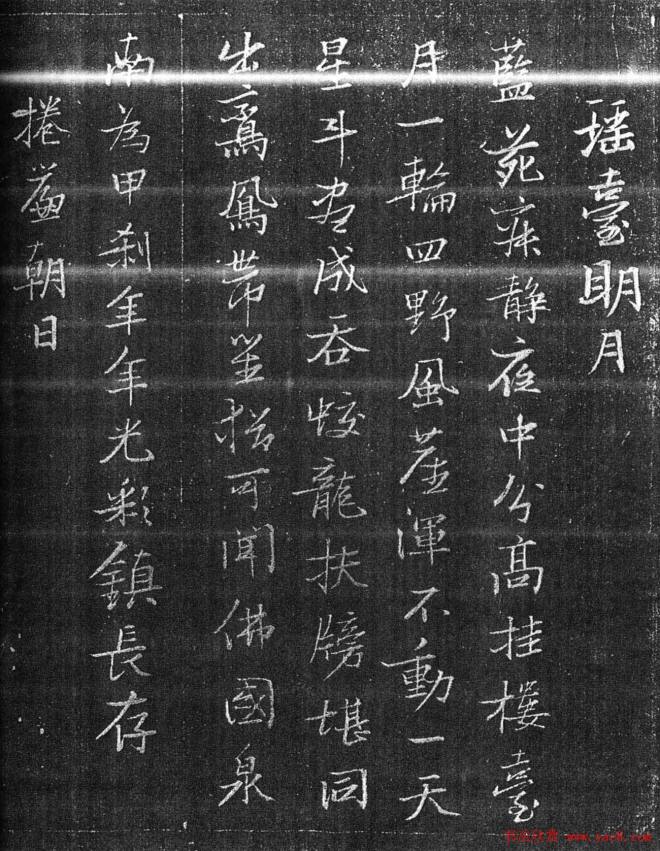 瑤臺明月
藍苑寂静夜中分高挂樓臺
月一輪四野風塵渾不動一天
星斗盡成吞蛟龍扶牓堪同
出鸞鳳帶笙猶可聞佛國泉
南為甲刹年年光彩鎮長存
捲簾朝日
书法欣赏 www.yac8.com